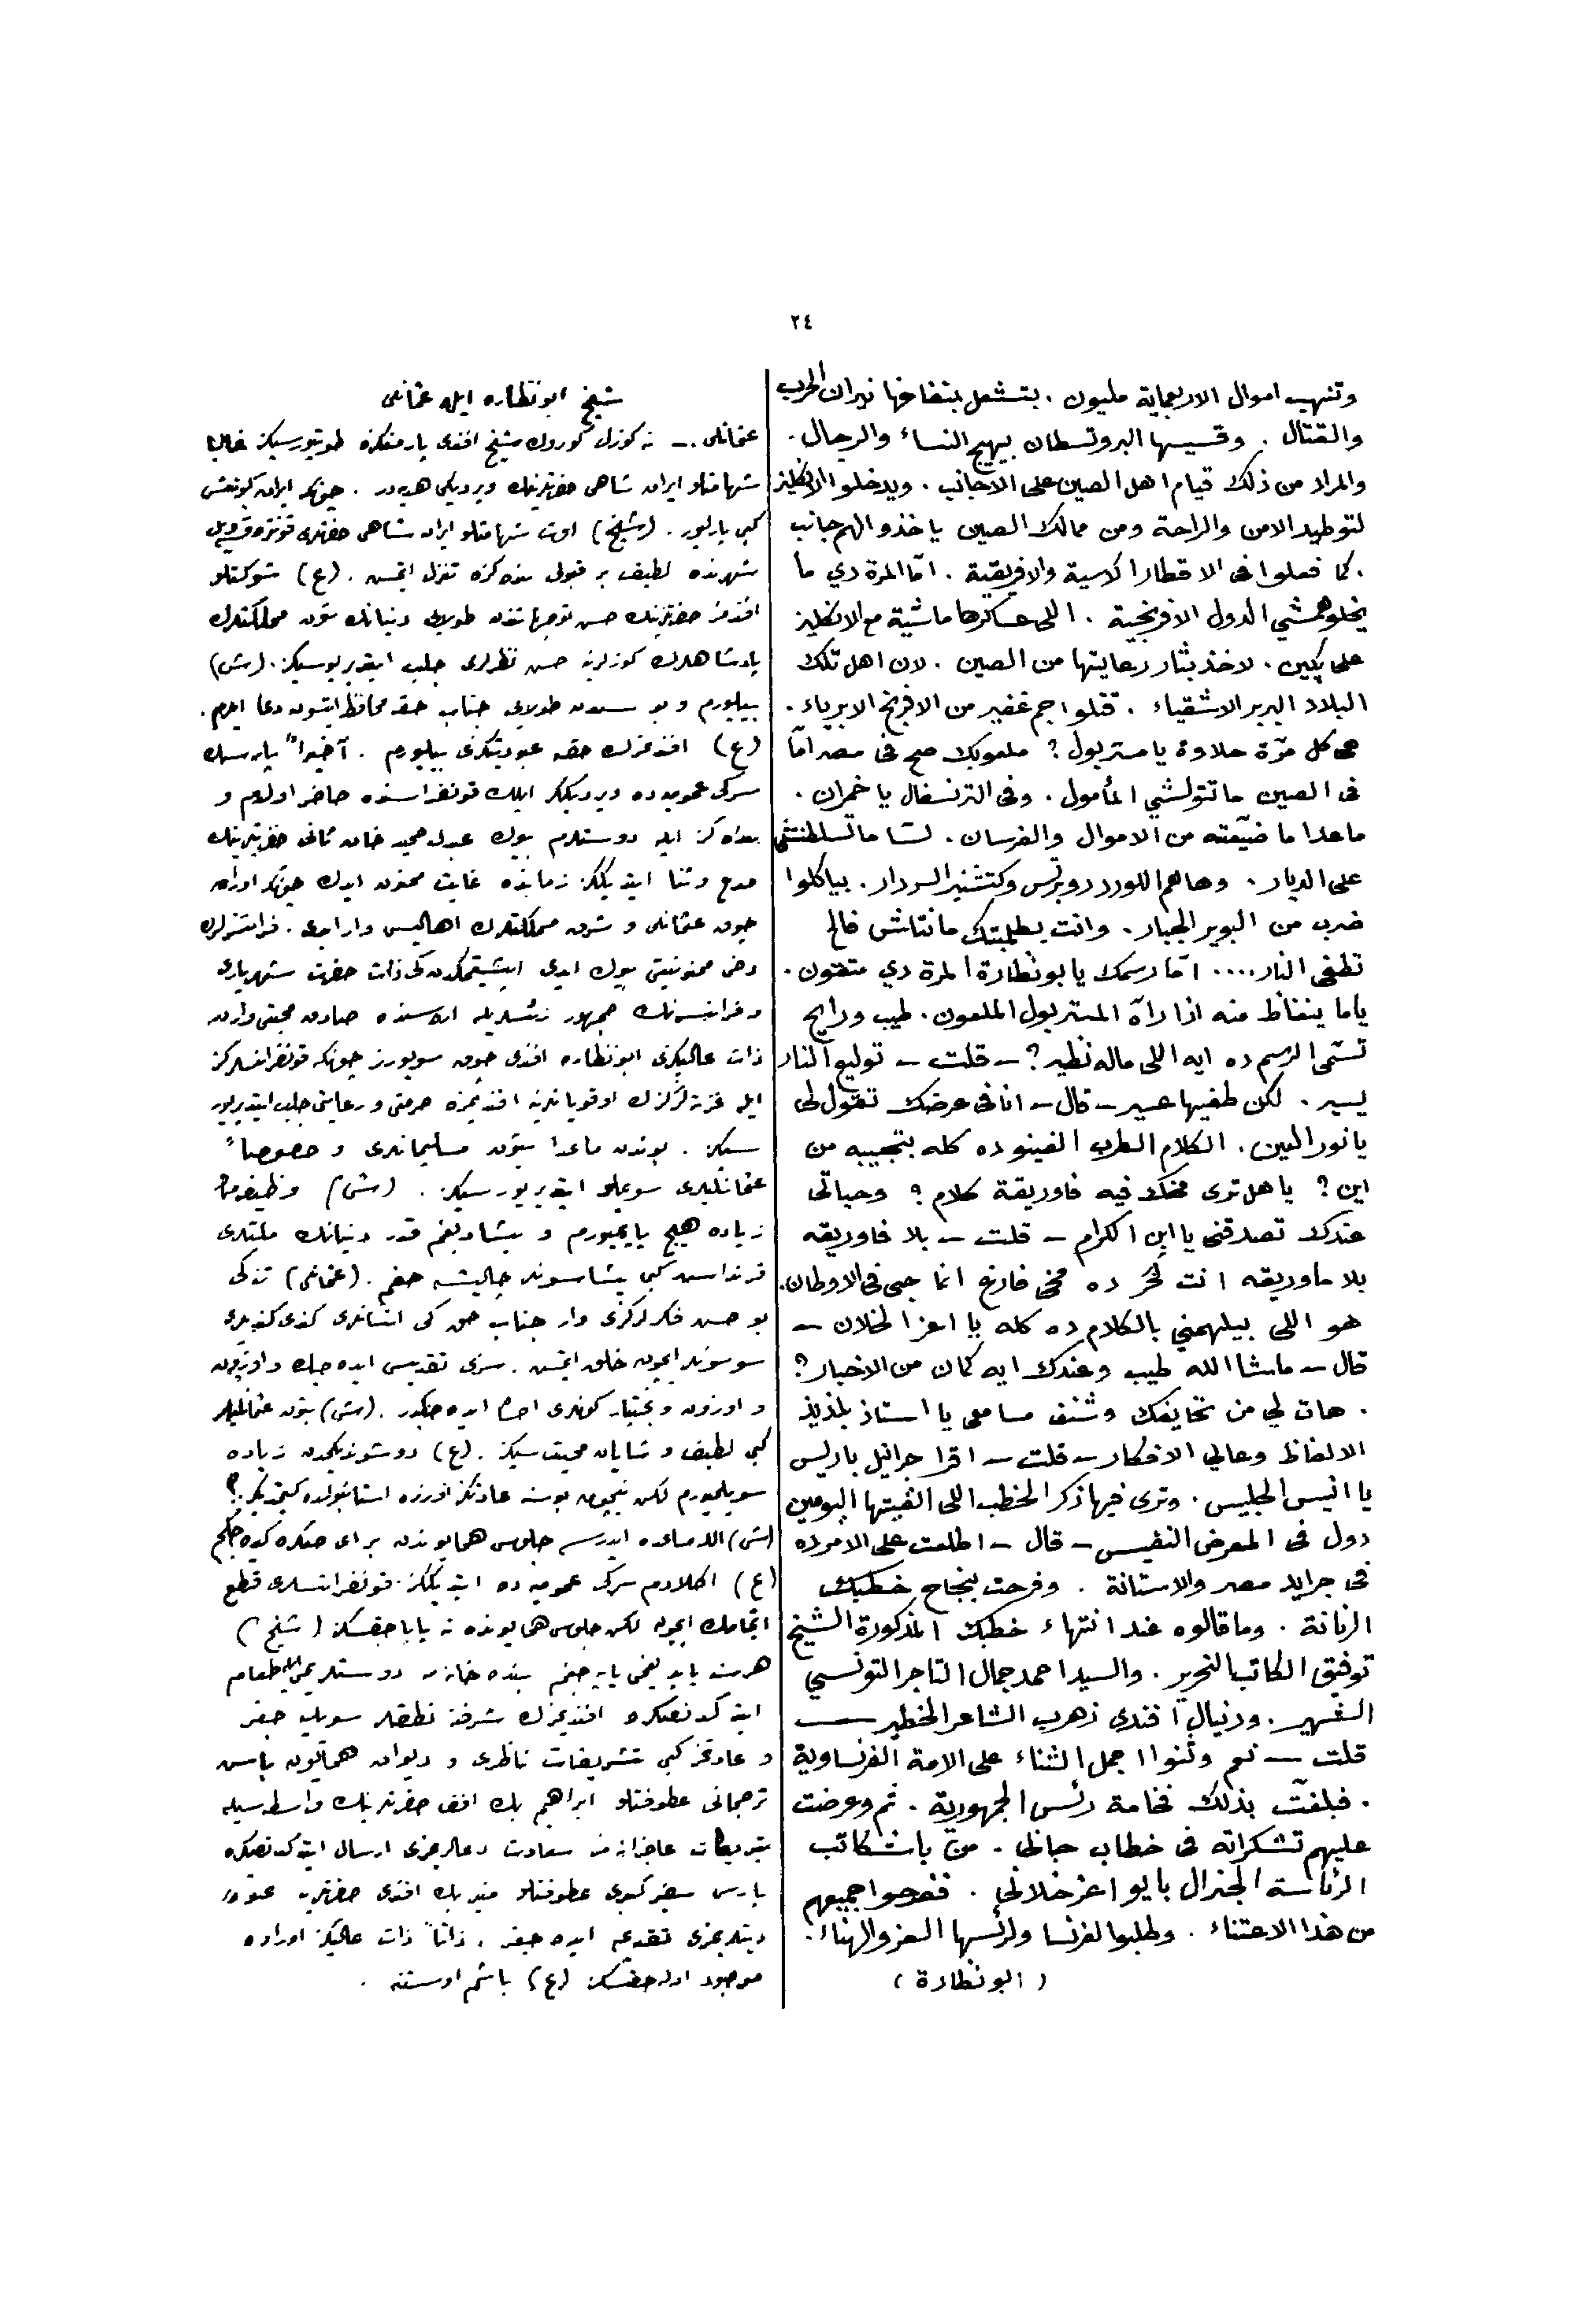 ٢٤
وتنهب اموال الاربعماية مليون . بتشعل بنفاخها نيران الحرب
والقتال . وقسيسها البروتسطان بيهيج النساء والرجال .
والمراد من ذلك قيام اهل الصين على الاجانب . ويدخلوا الانكليز
لتوطيد الامن والراحة ومن ممالك الصين ياخذوا لهم جانب
. كما فعلوا فى الاقطار الاسية والافريقية . امّا المرة دي ما
يخلوهمشي الدول الافرنجية . اللى عساكرها ماشية مع الانكليز
على پكين . لاخذ بثار رعايتها من الصين . لان اهل تلك
البلاد البربر الاشقياء . قتلوا جم غفير من الافرنج الابرياء .
هى كل مرّة حلاوة يا مستربول ؟ ملعوبك صح فى مصر امّا
فى الصين ما تتولشي المأمول . وفى الترنسفال يا خمران .
ماعدا ما ضيّعته من الاموال والفرسان . لسّا ما تسلطنتش
على الديار . وهاهم اللورد روبرتس وكتشنير السردار . بياكلوا
ضرب من البوير الجبار . وانت بطلمبتك مانتاش فالح
تطفى النار .... امّا رسمك يا بونظارة المرة دي متقون .
ياما ينغاظ منه اذا رآه المستر بول الملعون . طيب ورايح
تسمّى الرسم ده ايه اللى ماله نظير ؟ – قلت – توليع النار
يسير . لكن طفيها عسير – قال – انا فى عرضك تقول لى
يا نور العين . الكلام الطرب الفينو ده كله بتجيبه من
اين ؟ يا هل ترى مخك فيه فاوريقة كلام ؟ وحياتى
عندك تصدقنى يا ابن الكرام – قلت – بلا فاوريقه
بلا ماوريقه انت لخر ده مخى فارغ انما حبى فى الاوطان .
هو اللى بيلهمني بالكلام ده كله يا اعز الخلان –
قال – ماشا الله طيب وعندك ايه كمان من الاخبار ؟
. هات لي من تحايفك وشنف مسامعى يا استاذ بلذيذ
الالفاظ وعالي الافكار – قلت – اقرا جرانيل باريس
يا انيس الجليس . وترى فيها ذكر الخطب اللى القيتها اليومين
دول فى المعرض النفيس – قال – اطلعت على الامر ده
فى جرايد مصر والاستانة . وفرحت بنجاح خطبك
الرنانة . وما قالوه عند انتهاء خطبك المذكورة الشيخ
توفيق الكاتب النحرير . والسيد احمد جمال التاجر التونسي
الشهير . ودنيال افندى زهرب الشاعر الخطير —
قلت — نعم وثنوا اجمل الثناء على الامة الفرنساوية
. فبلغت بذلك فخامة رئس الجمهورية . ثم وعرضت
عليهم تشكراته فى خطاب جانى . من باشكاتب
الرئاسة الجنرال بايو اعز خلانى . ففرحوا جميعهم
من هذا الاعتناء . وطلبوا لفرنسا ولرئسها العز والهناء .
( ابو نظارة )
شيخ ابو نظاره ايله عثمانلى
عثمانلى . – نه كوزل كوردك شيخ افندى يازمقكزه طوتيورسيكز غالبا
شهامتلو ايران شاهى حضرتلرينك ويرديكى هديه در . چونكه ايران
كبى پارليور . (شيخ) اوت شهامتلو ايران شاهى حضرتلرى
شهرنده لطيف بر قبولى بنده كزه تنزل ايتمش . (ع) شوكتلو
افندمز حضرتلرينك حسن توجهاتندن طولايى دنيانك بتون مملكتلرك
پادشاهلرك كوزلرينه حسن نظرلرى جلب ايتديريورسيكز . (ش)
بيليورم و بو سببدن طولايى جناب حقه محافظ ايتسون دعا ايدرم .
(ع) افندمزك حقنه عبوديتكزى بيليورم . آخيراً پارسك
سركى عموميه ده ويرديككز ايلك قونفرانسنده حاضر اولدم و
بنده كز ايله دوستلرم بيوك عبدالحميد خان ثانى حضرتلرينك
مدح و ثنا ايتديككز زمانده غايت ممنون ايدك چونكه اوراده
چوق عثمانلى و شرق مملكتلرك اهاليسى وار ايدى . فرانسزلرك
دخى ممنونيتى بيوك ايدى ايشيتمكدن كه ذات حضرت شهريارى
و فرانسه نك جمهور رئسيله اره سنده صادق محبتى واردر
ذات عاليكزى ابو نظاره افندى چوق سويورز چونكه قونفرانسلركز
ايله غزته لركزك اوقويانلرينه افنديمزه حرمتى و رعايتى جلب ايتديريور
سيكز . بوندن ماعدا بتون مسليمانلرى و خصوصاً
عثمانليلرى سويملو ايتديريورسيكز . (ش) وظيفه مدن
زياده هيچ يايميورم و يشاديغم قدر دنيانك ملتلرى
قرنداشلر كبى يشاسونلر چاليشه جغم . (عثمانلى)
بو حسن فكرلركزى وار جناب حق كه انسانلرى كندى كنديلرى
سوسونلر ايچون خلق ايتمش . سزى تقديس ايده جك
و اوزون و بختيار كونلرى احسان ايده جكدر . (ش) بتون عثمانليلر
كبى لطيف و شايان محبت سيكز . (ع) دوشونديكمدن زياده
سويلميورم لكن نيچون بو سنه عادتكز اوزره استانبولده كيتمديكز ؟
(ش) الله مساعده ايدرسه جلوس همايوندن بر اى صكره كيده جكم
(ع) اكلادم سركى عموميه ده ايتديككز قونفرانسلرى قطع
ايتمامك ايچون لكن جلوس همايونده نه ياپاجقسكز (شيخ)
هر سنه ياپديغمى ياپه جغم بنده خانه مه دوستلريمى طعام
ايتدكدنصكره افنديمزك شرفنه نطقلر سويليه جكز
و عادتمز كبى تشريفات ناظرى و ديوان همايون باش
ترجمانى عطوفتلو ابراهيم بك افندى حضرتلرينك واسطه سيله
تبريكات عاجزانه مز سعادت دعالرمزى ارسال ايتدكدنصكره
پارس سفير كبيرى عطوفتلو منير بك افندى حضرتلرينه
ديتلريمزى تقديم ايده جكز . ذاتاً ذات عاليكز اوراده
موجود اوله جقسكز (ع) باشم اوستنه .